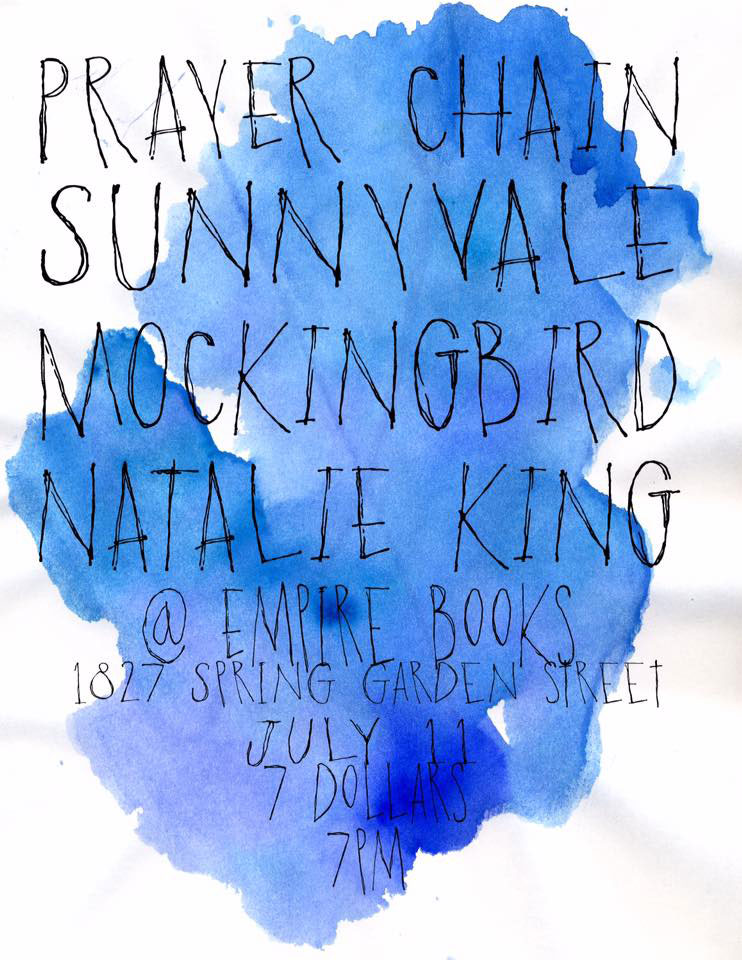 PRAYER CHAIN
SUNNYVALE
MOCKINGBIRD
NATALIE KING
@ EMPIRE BOOKS
1827 SPRING GARDEN STREET
JULY 11
7 DOLLARS
7PM